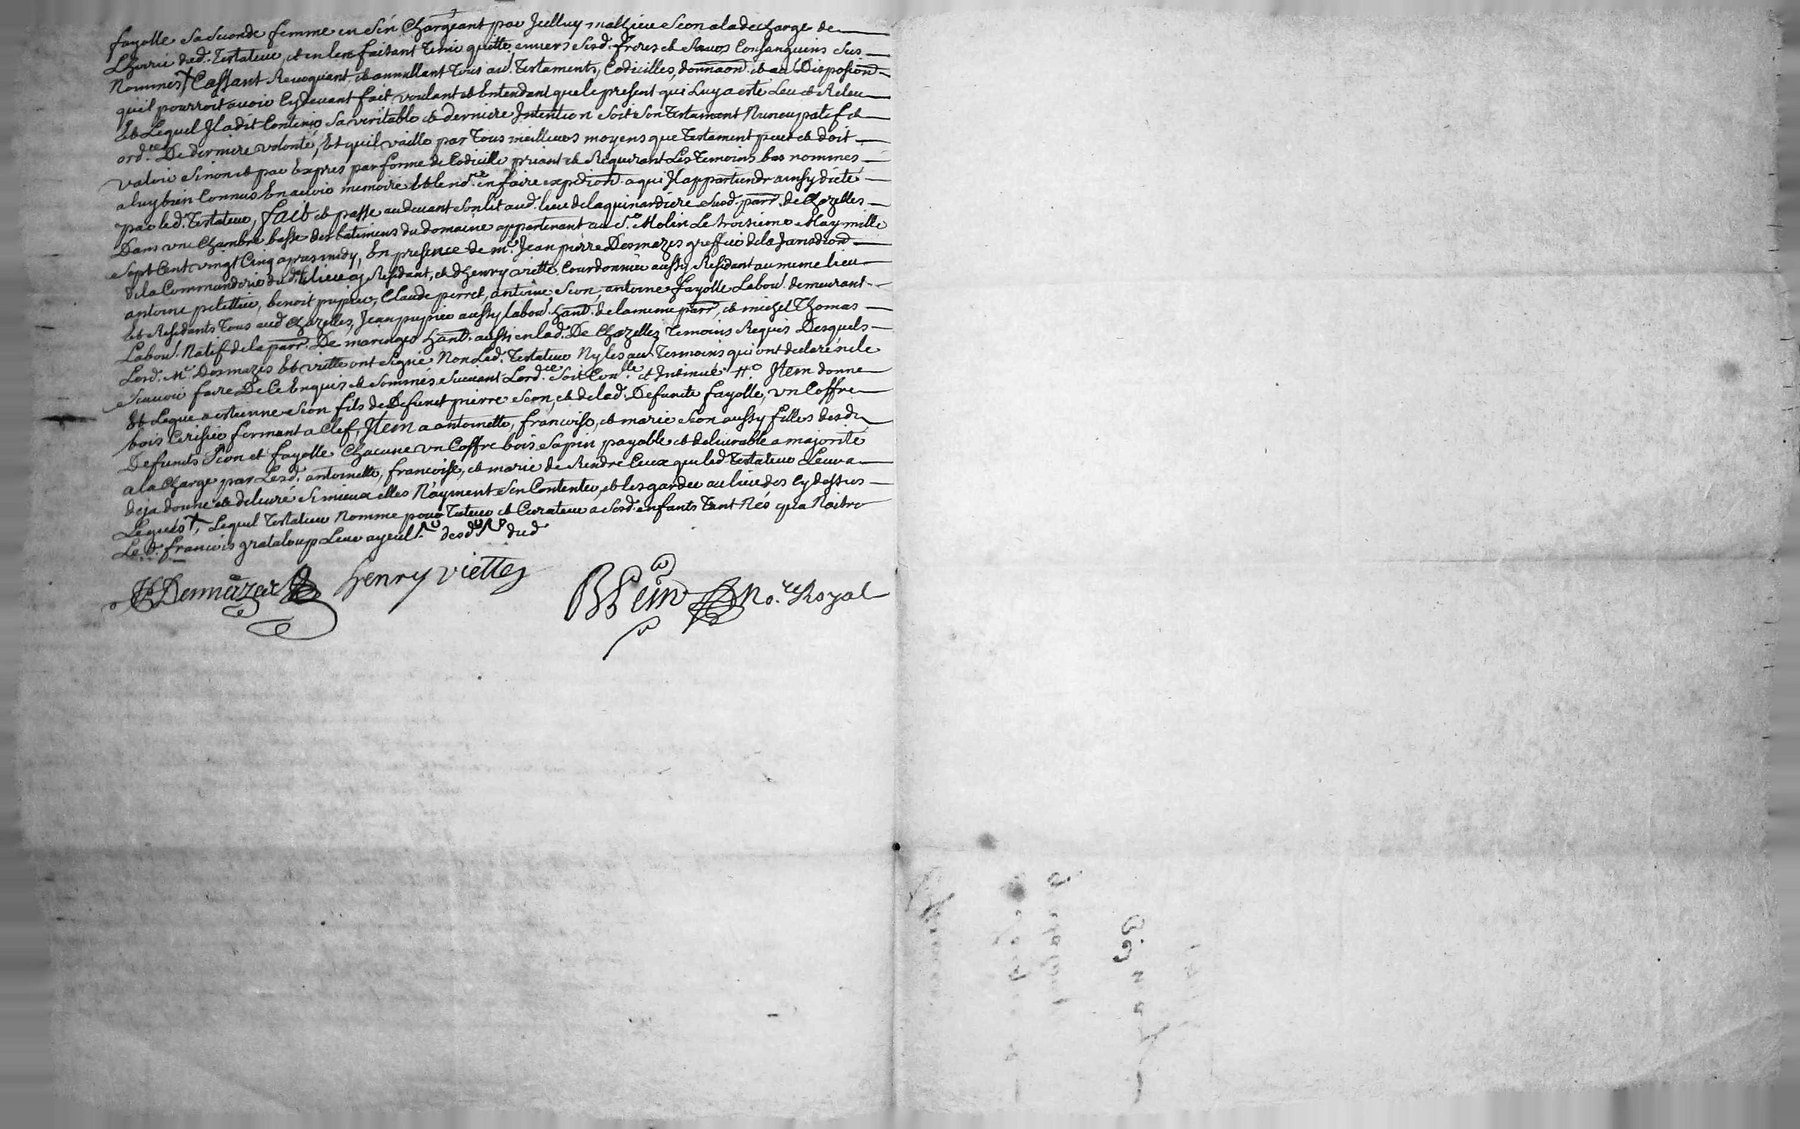 fayolle sa seconde femme en s'en Chargeant par Icelluy mathieu Seon a la decharge de
L'hoirie dud. Testateur, et en l'en faisant Tenir quitte envers sesd. freres et sœurs Consanguins sus
Nommés + Cassant Revoquant et annullant Tous au.t Testaments, Codicilles, donnaōn et au.t Disposiōn
qu'il pourroit avoir Cydevant fait voulant et Entendant que le present qui Luy a esté Leu et Releu
Et Lequel Il a dit Contenir sa veritable et derniere Intention soit son Testament Nuncupatif et
ord.ce De derniere volonté, Et quil vaille par Tous meilleurs moyens que Testament peut et doit
valoir Sinon et par Expres par forme de Codicille priant et Requerant Les Temoins bas nommés
a luy bien Connus En avoir memoire Et le nd.re en faire expediōn a qui Il appartiendr ainsy dicté
par led. Testateur, fait et passé au devant son lit aud. lieu de laguinardiere susd. parr. de Chazelles
Dans une Chambre basse des batimens du domaine appartenant au S.r Molin Le troisieme May mille
Sept Cent vingt Cinq apres midy, En presence de m.e Jean pierre Desmazes greffier de la Jurisdiōn
de la Commanderie dud. lieu y Residant, et d'henry viette Courdonnier aussy Residant au meme lieu
antoine petettier, benoit pupier, Claude perret, antoine Seon, antoine fayolle Labou.r demeurant
Et Residants Tous aud. Chazelles, Jean pupier aussy labou.r hant. de la meme parr., et michel Thomas
Labou.r Natif de la parr. De maringe hant. aussi en lad. De Chazelles Temoins Requis Desquels
Lesd. M.e Desmazes Et viette ont signé Non Led. Testateur Ny les au.t Temoins qui ont declaré ne le
Scavoir faire De Ce Enquis et Sommés suivant Lord.ce soit Con.lle et Insinué #.o Item donne
Et Legue a estienne Seon fils de Defunct pierre Seon, et de lad. Defuncte fayolle, un Coffre
bois Cerisier fermant a Clef, Item a antoinette, francoise, et marie Seon aussy filles desdi
Defunts Seon et fayolle Chacune un Coffre bois sapin payable et delivrable a majorité
a la Charge par Lesd. antoinette, francoise, et marie de Rendre Ceux que led Testateur Leur a
deja donné et delivré Si mieux elles N'ayment s'en Contenter, et les garder au lieu des cy dessus
Legués +, Lequel Testateur Nomme pour Tuteur et Curateur a Sesd. enfants Tant Nés qu'a Naitre
Le S.r francois grataloup Leur ayeul
JP Desmazes henry viette
No.re Royal